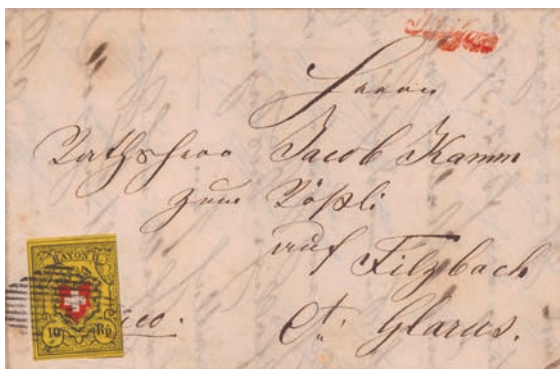 Herrn
Rathsherr Jacob Kamm
zum Rößli
auf Filzbach
Ct. Glarus.
RAYON II.
10 Rp.